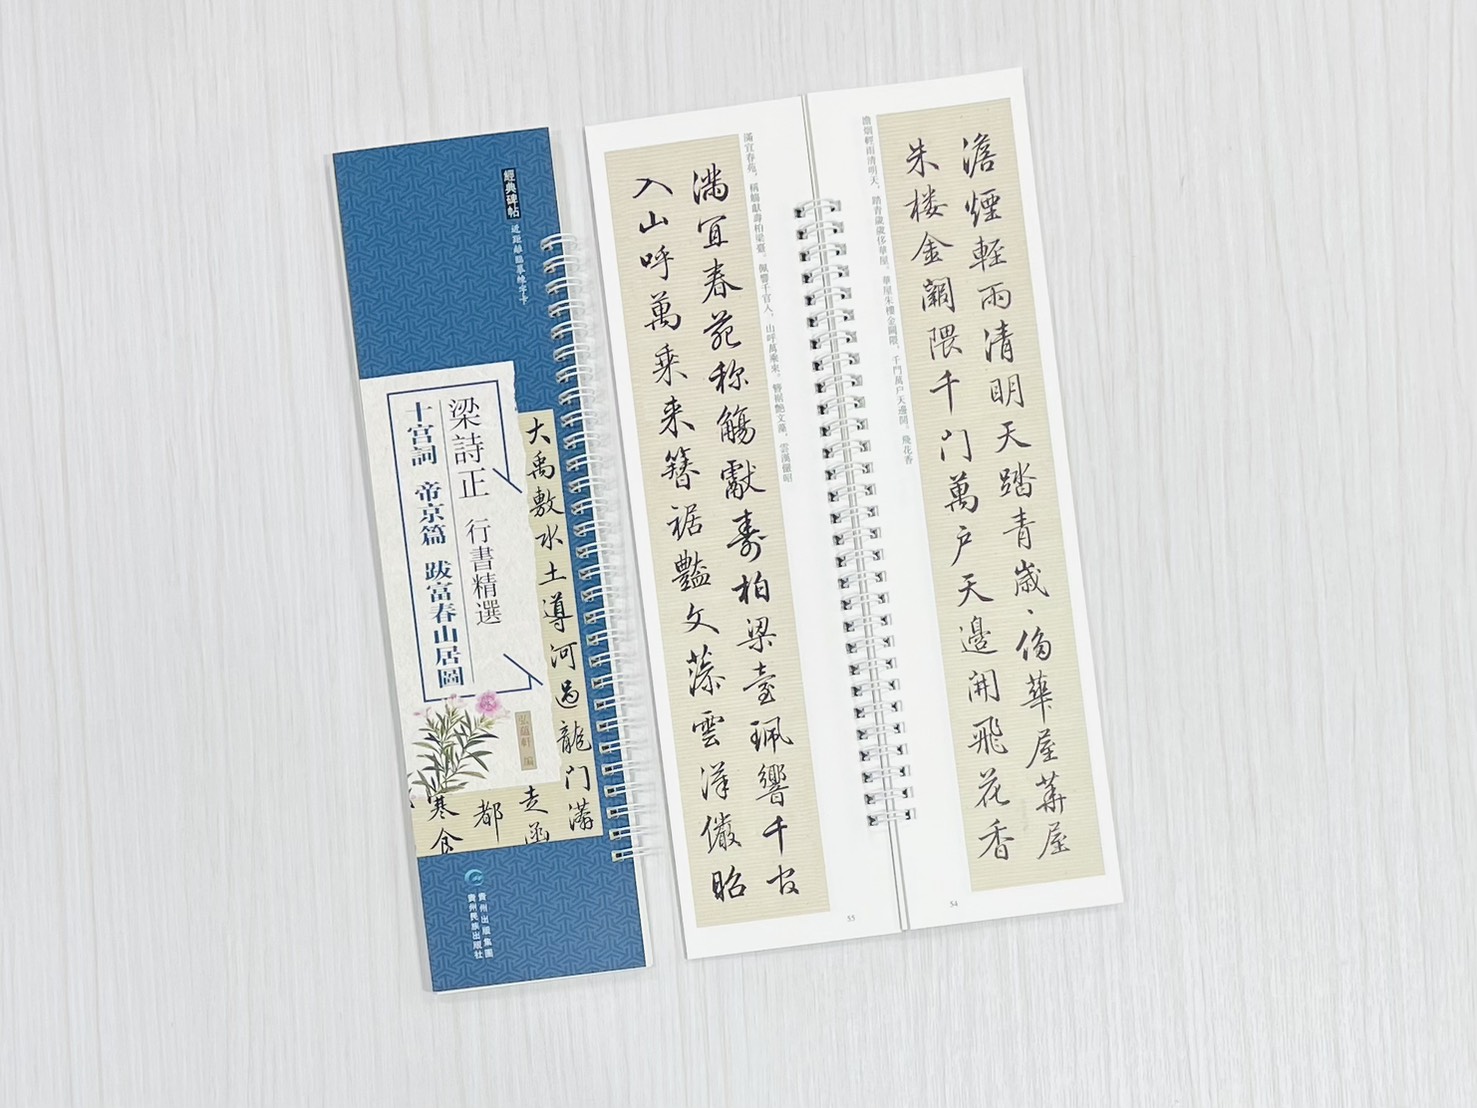 經典碑帖
近距離臨摹練字卡
梁詩正 行書精選
十宮詞 帝京篇 跋富春山居圖
弘蘊軒 編
大禹敷水土導河過龍门
滿
走函
都
寒食
貴州出版集團
貴州民族出版社
澹煙輕雨清明天踏青歲、侈華屋華屋
朱楼金闕隈千门萬户天邊開飛花香
澹烟輕雨清明天，踏青歲歲侈華屋。華屋朱樓金闕隈，千門萬户天邊開。飛花香
54
滿宜春苑称觴獻壽柏梁臺珮響千官
入山呼萬乘来簪裾豔文藻雲漢儼昭
滿宜春苑，稱觴獻壽柏梁臺。珮響千官人，山呼萬乘來。簪裾艷文藻，雲漢儼昭
55